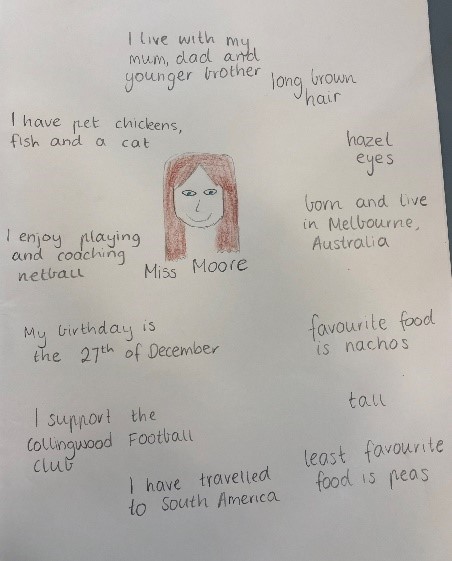 I live with my
mum, dad and
younger brother
long brown
hair
I have pet chickens,
fish and a cat
hazel
eyes
born and live
in Melbourne,
Australia
I enjoy playing
and coaching
netball
Miss Moore
My birthday is
the 27th of December
favourite food
is nachos
tall
I support the
Collingwood Football
club
least favourite
food is peas
I have travelled
to South America